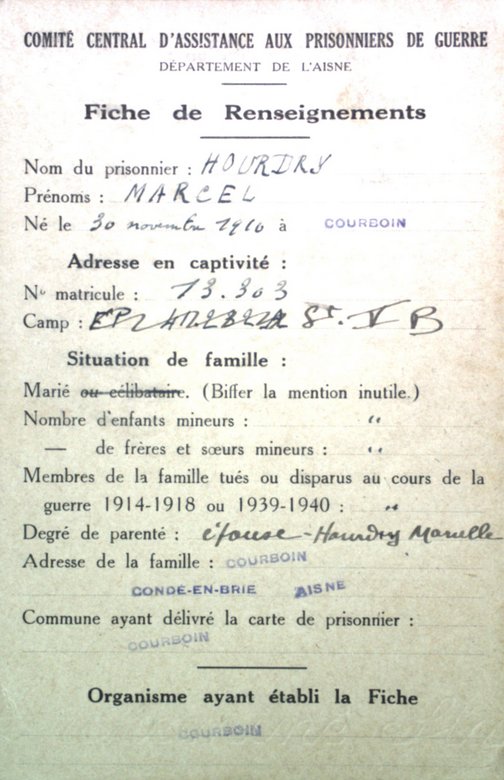 COMITÉ CENTRAL D'ASSISTANCE AUX PRISONNIERS DE GUERRE
DÉPARTEMENT DE L'AISNE
Fiche de Renseignements
Nom du prisonnier : HOURDRY
Prénoms : MARCEL
Né le 30 novembre 1910 à COURBOIN
Adresse en captivité :
N° matricule : 13.303
Camp : St. V B
Situation de famille :
Marié ou célibataire. (Biffer la mention inutile.)
Nombre d'enfants mineurs : "
— de frères et sœurs mineurs : "
Membres de la famille tués ou disparus au cours de la
guerre 1914-1918 ou 1939-1940 : "
Degré de parenté : épouse - Hourdry
Adresse de la famille : COURBOIN
CONDÉ-EN-BRIE AISNE
Commune ayant délivré la carte de prisonnier :
COURBOIN
Organisme ayant établi la Fiche
COURBOIN